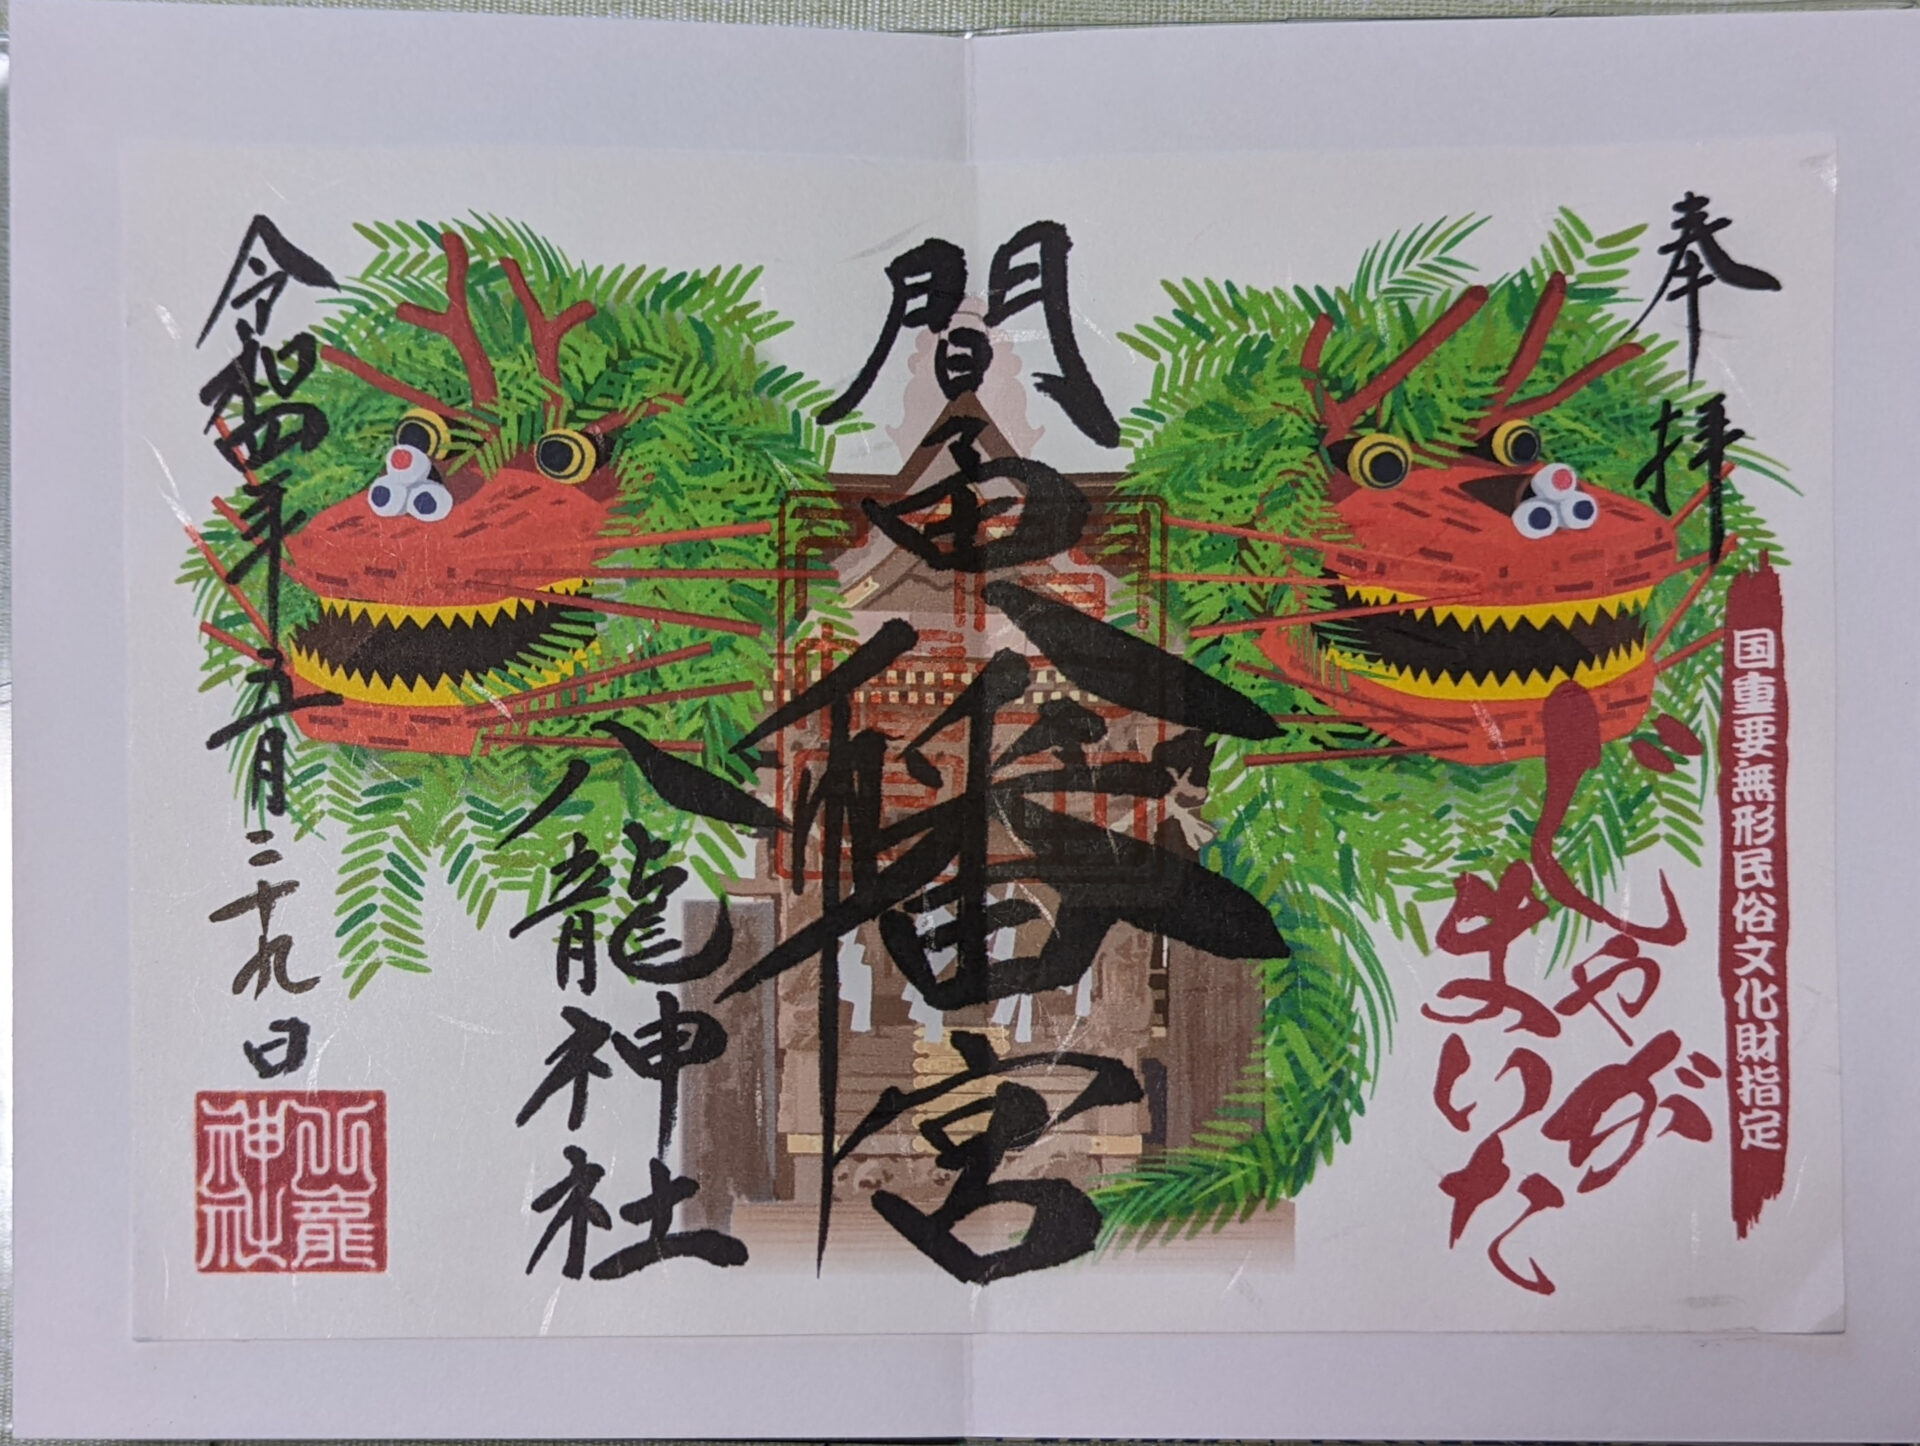 奉拝
国重要無形民俗文化財指定
じゃがまいた
間々田八幡宮
八龍神社
令和四年五月二十九日
八龍神社